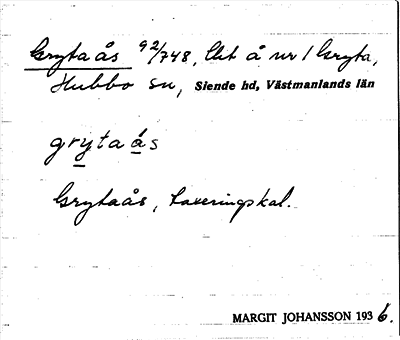 Grytaås 92/748, lht å nr 1 Gryta,
Hubbo sn, Siende hd, Västmanlands län
grytaås
Grytaås, taxeringskal.
MARGIT JOHANSSON 1936.